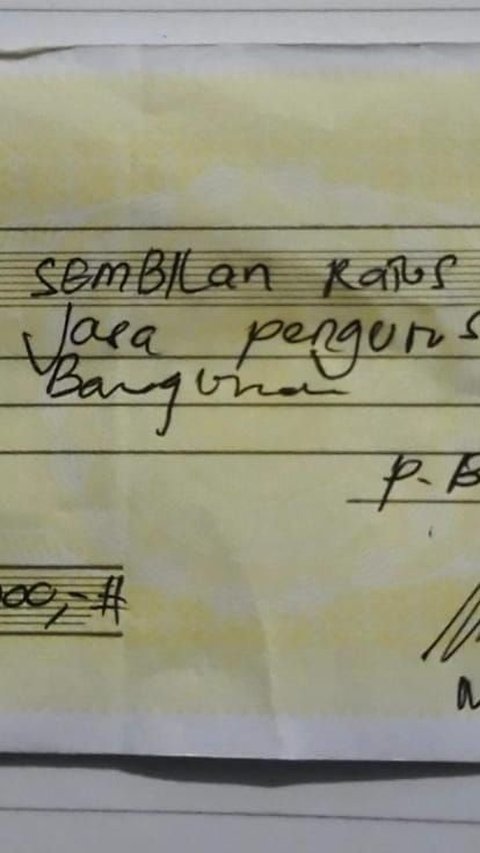 SEMBILan RaTus
Jasa pengurus
Bangunan
P. B
00,-#